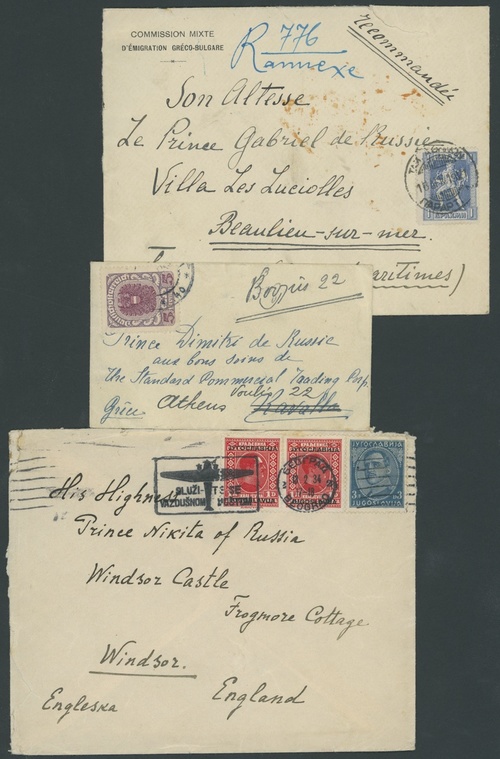 COMMISSION MIXTE
D'ÉMIGRATION GRÉCO-BULGARE
R 776
annexe
recommandée
Son Altesse
Le Prince Gabriel de Russie
Villa Les Luciolles
Beaulieu-sur-mer
Maritimes)
5 5
Βουλῆς 22
Prince Dimitri de Russie
aux bons soins de
The Standard Commercial Trading Corp.
Voulis 22
Grèce Athens Kavalla
SLUŽI-TE SE
VAZDUŠNOM POŠTOM
ЈУГОСЛАВИЈА
JUGOSLAVIJA
3 3
BEOGRAD
His Highness
Prince Nikita of Russia
Windsor Castle
Frogmore Cottage
Windsor.
England
Engleska